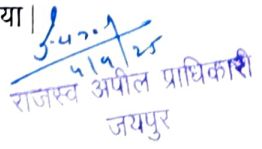 या|
4/9/25
राजस्व अपील प्राधिकारी
जयपुर